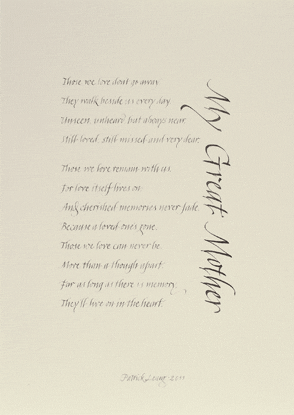 Those we love don't go away.
They walk beside us every day.
Unseen, unheard but always near.
Still loved, still missed and very dear.
Those we love remain with us.
For love itself lives on.
And cherished memories never fade.
Because a loved one's gone.
Those we love can never be.
More than a though apart.
Far as long as there is memory.
They'll live on in the heart.
My Great Mother
Patrick Leung 2011